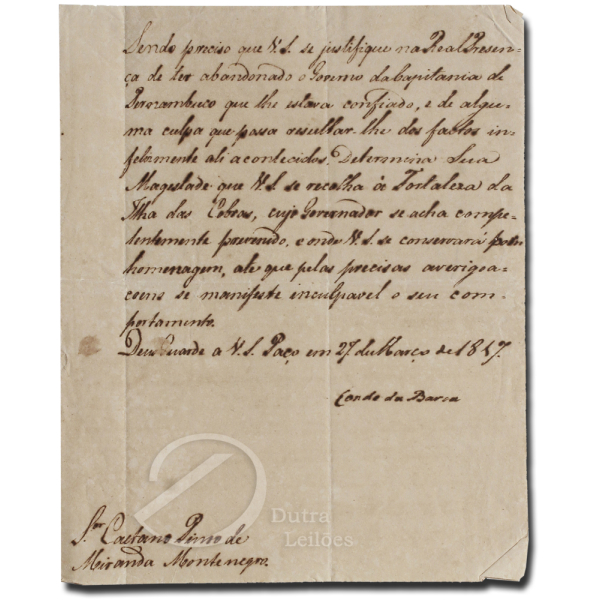 Sendo preciso que V.S. se justifique na Real Presen-
ça de ter abandonado o Governo da Capitania de
Pernambuco que lhe estava confiado, e de algu-
ma culpa que possa resultar-lhe dos factos in-
felizmente ali acontecidos: Determina Sua
Magestade que V.S. se recolha à Fortaleza da
Ilha das Cobras, cujo Governador se acha compe-
tentemente prevenido, e onde V.S. se conservará por
homenagem, até que pelas precisas averigoa-
coens se manifeste inculpavel o seu com-
portamento.
Deus Guarde a V.S. Paço em 27 de Março de 1817.
Conde da Barca
Dutra
Leilões
Sor. Caetano Pinto de
Miranda Montenegro.